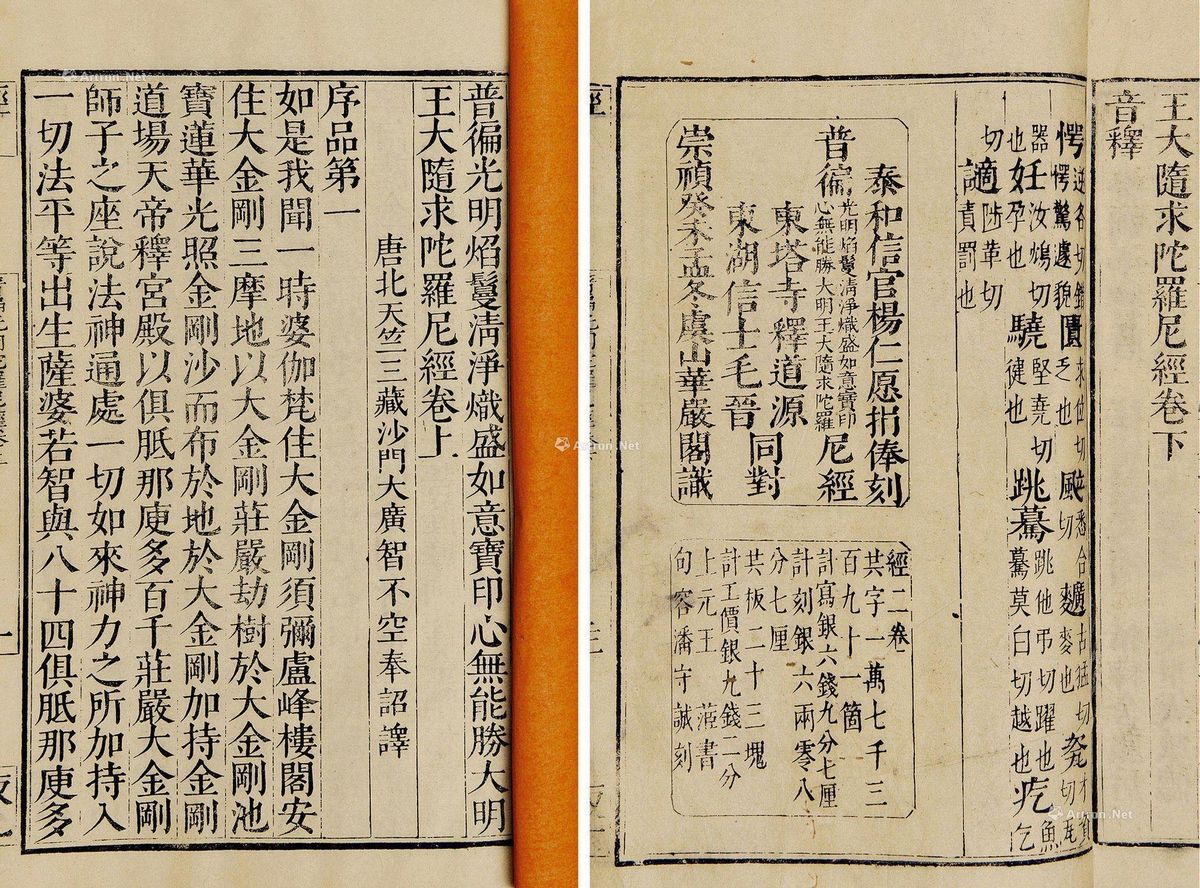 普徧光明焰鬘清淨熾盛如意寶印心無能勝大明
王大隨求陀羅尼經卷上
唐北天竺三藏沙門大廣智不空奉詔譯
序品第一
如是我聞一時婆伽梵住大金剛須彌盧峰樓閣安
住大金剛三摩地以大金剛莊嚴劫樹於大金剛池
寶蓮華光照金剛沙而布於地於大金剛加持金剛
道場天帝釋宮殿以俱胝那庾多百千莊嚴大金剛
師子之座說法神通處一切如來神力之所加持入
一切法平等出生薩婆若智與八十四俱胝那庾多
王大隨求陀羅尼經卷下
音釋
愕逆各切錯
愕驚遽貌匱求位切
乏也颯悉合
切麨
麥也
器妊汝鴆切
也孕也驍堅堯切
健也跳驀跳他弔切躍也
驀莫白切越也疙魚
乞
切讁陟革切
責罰也
泰和信官楊仁愿捐俸刻
普徧光明焰鬘清淨熾盛如意寶印
心無能勝大明王大隨求陀羅尼經
東塔寺釋道源
東湖信士毛晉同對
崇禎癸未孟冬虞山華嚴閣識
經二卷
共字一萬七千三
百九十一箇
計寫銀六錢九分七厘
計刻銀六兩零八
分七厘
共板二十三塊
計工價銀九錢二分
上元王 書
句容潘守誠刻
Artron.Net
Artron.Net
Artron.Net